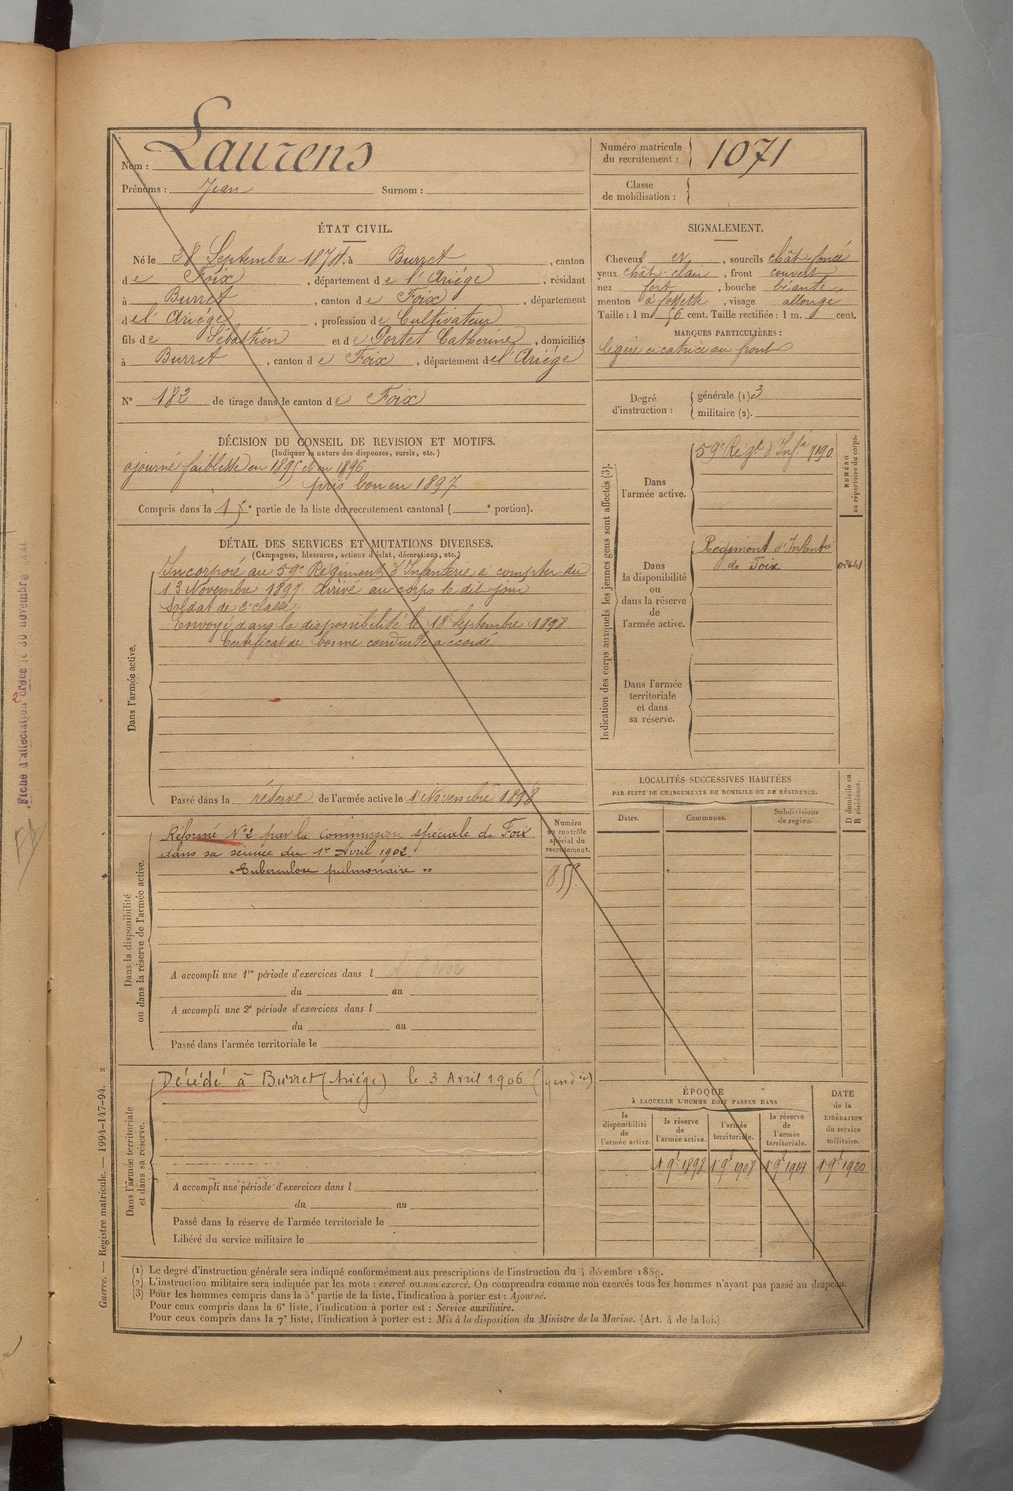 Nom : Laurens
Prénoms : Jean Surnom :
Numéro matricule du recrutement : 1071
Classe de mobilisation :
ÉTAT CIVIL.
Né le 28 Septembre 1874 à Burret , canton
de Foix , département de l'Ariège , résidant
à Burret , canton de Foix , département
de l'Ariège , profession de Cultivateur
fils de Sébastien et de Portet Catherine , domiciliés
à Burret , canton de Foix , département de l'Ariège
N° 183 de tirage dans le canton de Foix
SIGNALEMENT.
Cheveux , sourcils chât foncé
yeux chât clair , front couvert
nez fort , bouche béante
menton à fossette , visage allongé
Taille : 1 m 56 cent. Taille rectifiée : 1 m. cent.
MARQUES PARTICULIÈRES :
légère cicatrice au front
Degré d'instruction :
générale (1) 3
militaire (2).
DÉCISION DU CONSEIL DE REVISION ET MOTIFS.
(Indiquer la nature des dispenses, sursis, etc.)
ajourné faiblesse en 1895 et en 1896
pris bon en 1897
Compris dans la 1e partie de la liste du recrutement cantonal ( e portion).
DÉTAIL DES SERVICES ET MUTATIONS DIVERSES.
(Campagnes, blessures, actions d'éclat, décorations, etc.)
Dans l'armée active.
Incorporé au 59e Régiment d'Infanterie à compter du
13 Novembre 1897. Arrivé au corps le dit jour
Soldat de 2e classe.
Envoyé dans la disponibilité le 18 Septembre 1898
Certificat de bonne conduite accordé
Passé dans la réserve de l'armée active le 1 Novembre 1898
Indication des corps auxquels les jeunes gens sont affectés (3).
NUMÉRO au répertoire du corps.
Dans l'armée active.
59e Régt d'Infie 7190
Dans la disponibilité ou dans la réserve de l'armée active.
Régiment d'Infanterie
de Foix 02441
Dans l'armée territoriale et dans sa réserve.
LOCALITÉS SUCCESSIVES HABITÉES
PAR SUITE DE CHANGEMENTS DE DOMICILE OU DE RÉSIDENCE.
Dates. Communes. Subdivisions de region.
D domicile ou R résidence.
Dans la disponibilité ou dans la réserve de l'armée active.
Numéro au contrôle spécial du recrutement.
Réformé N°2 par la commission spéciale de Foix
dans sa séance du 1er Avril 1902.
"Tuberculose pulmonaire"
A accompli une 1re période d'exercices dans l
du au
A accompli une 2e période d'exercices dans l
du au
Passé dans l'armée territoriale le
Dans l'armée territoriale et dans sa réserve.
Décédé à Burret (Ariège) le 3 Avril 1906
A accompli une période d'exercices dans l
du au
Passé dans la réserve de l'armée territoriale le
Libéré du service militaire le
ÉPOQUE
À LAQUELLE L'HOMME DOIT PASSER DANS
DATE de la LIBÉRATION du service militaire.
la disponibilité de l'armée active.
la réserve de l'armée active.
l'armée territoriale.
la réserve de l'armée territoriale.
1 9e 1898 1 9e 1908 1 9e 1914 1 9e 1920
(1) Le degré d'instruction générale sera indiqué conformément aux prescriptions de l'instruction du 4 décembre 1889.
(2) L'instruction militaire sera indiquée par les mots : exercé ou non exercé. On comprendra comme non exercés tous les hommes n'ayant pas passé au drapeau.
(3) Pour les hommes compris dans la 5e partie de la liste, l'indication à porter est : Ajourné.
Pour ceux compris dans la 6e liste, l'indication à porter est : Service auxiliaire.
Pour ceux compris dans la 7e liste, l'indication à porter est : Mis à la disposition du Ministre de la Marine. (Art. 4 de la loi.)
Guerre. — Registre matricule. — 1994-147-94. 2